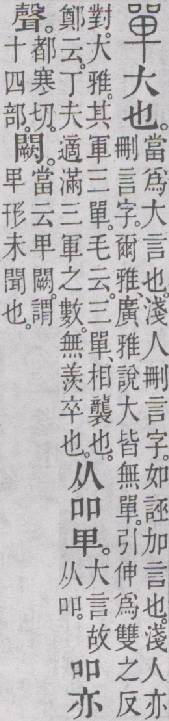 單大也。當爲大言也。淺人刪言字。如誣加言也。淺人亦刪言字。爾雅、廣雅說大皆無單。引伸爲雙之反
對。大雅。其軍三單。毛云。三單、相襲也。鄭云。丁夫適滿三軍之數。無羨卒也。从吅𠦒。大言故从吅。吅亦
聲。都寒切。十四部。闕。當云𠦒闕。謂𠦒形未聞也。